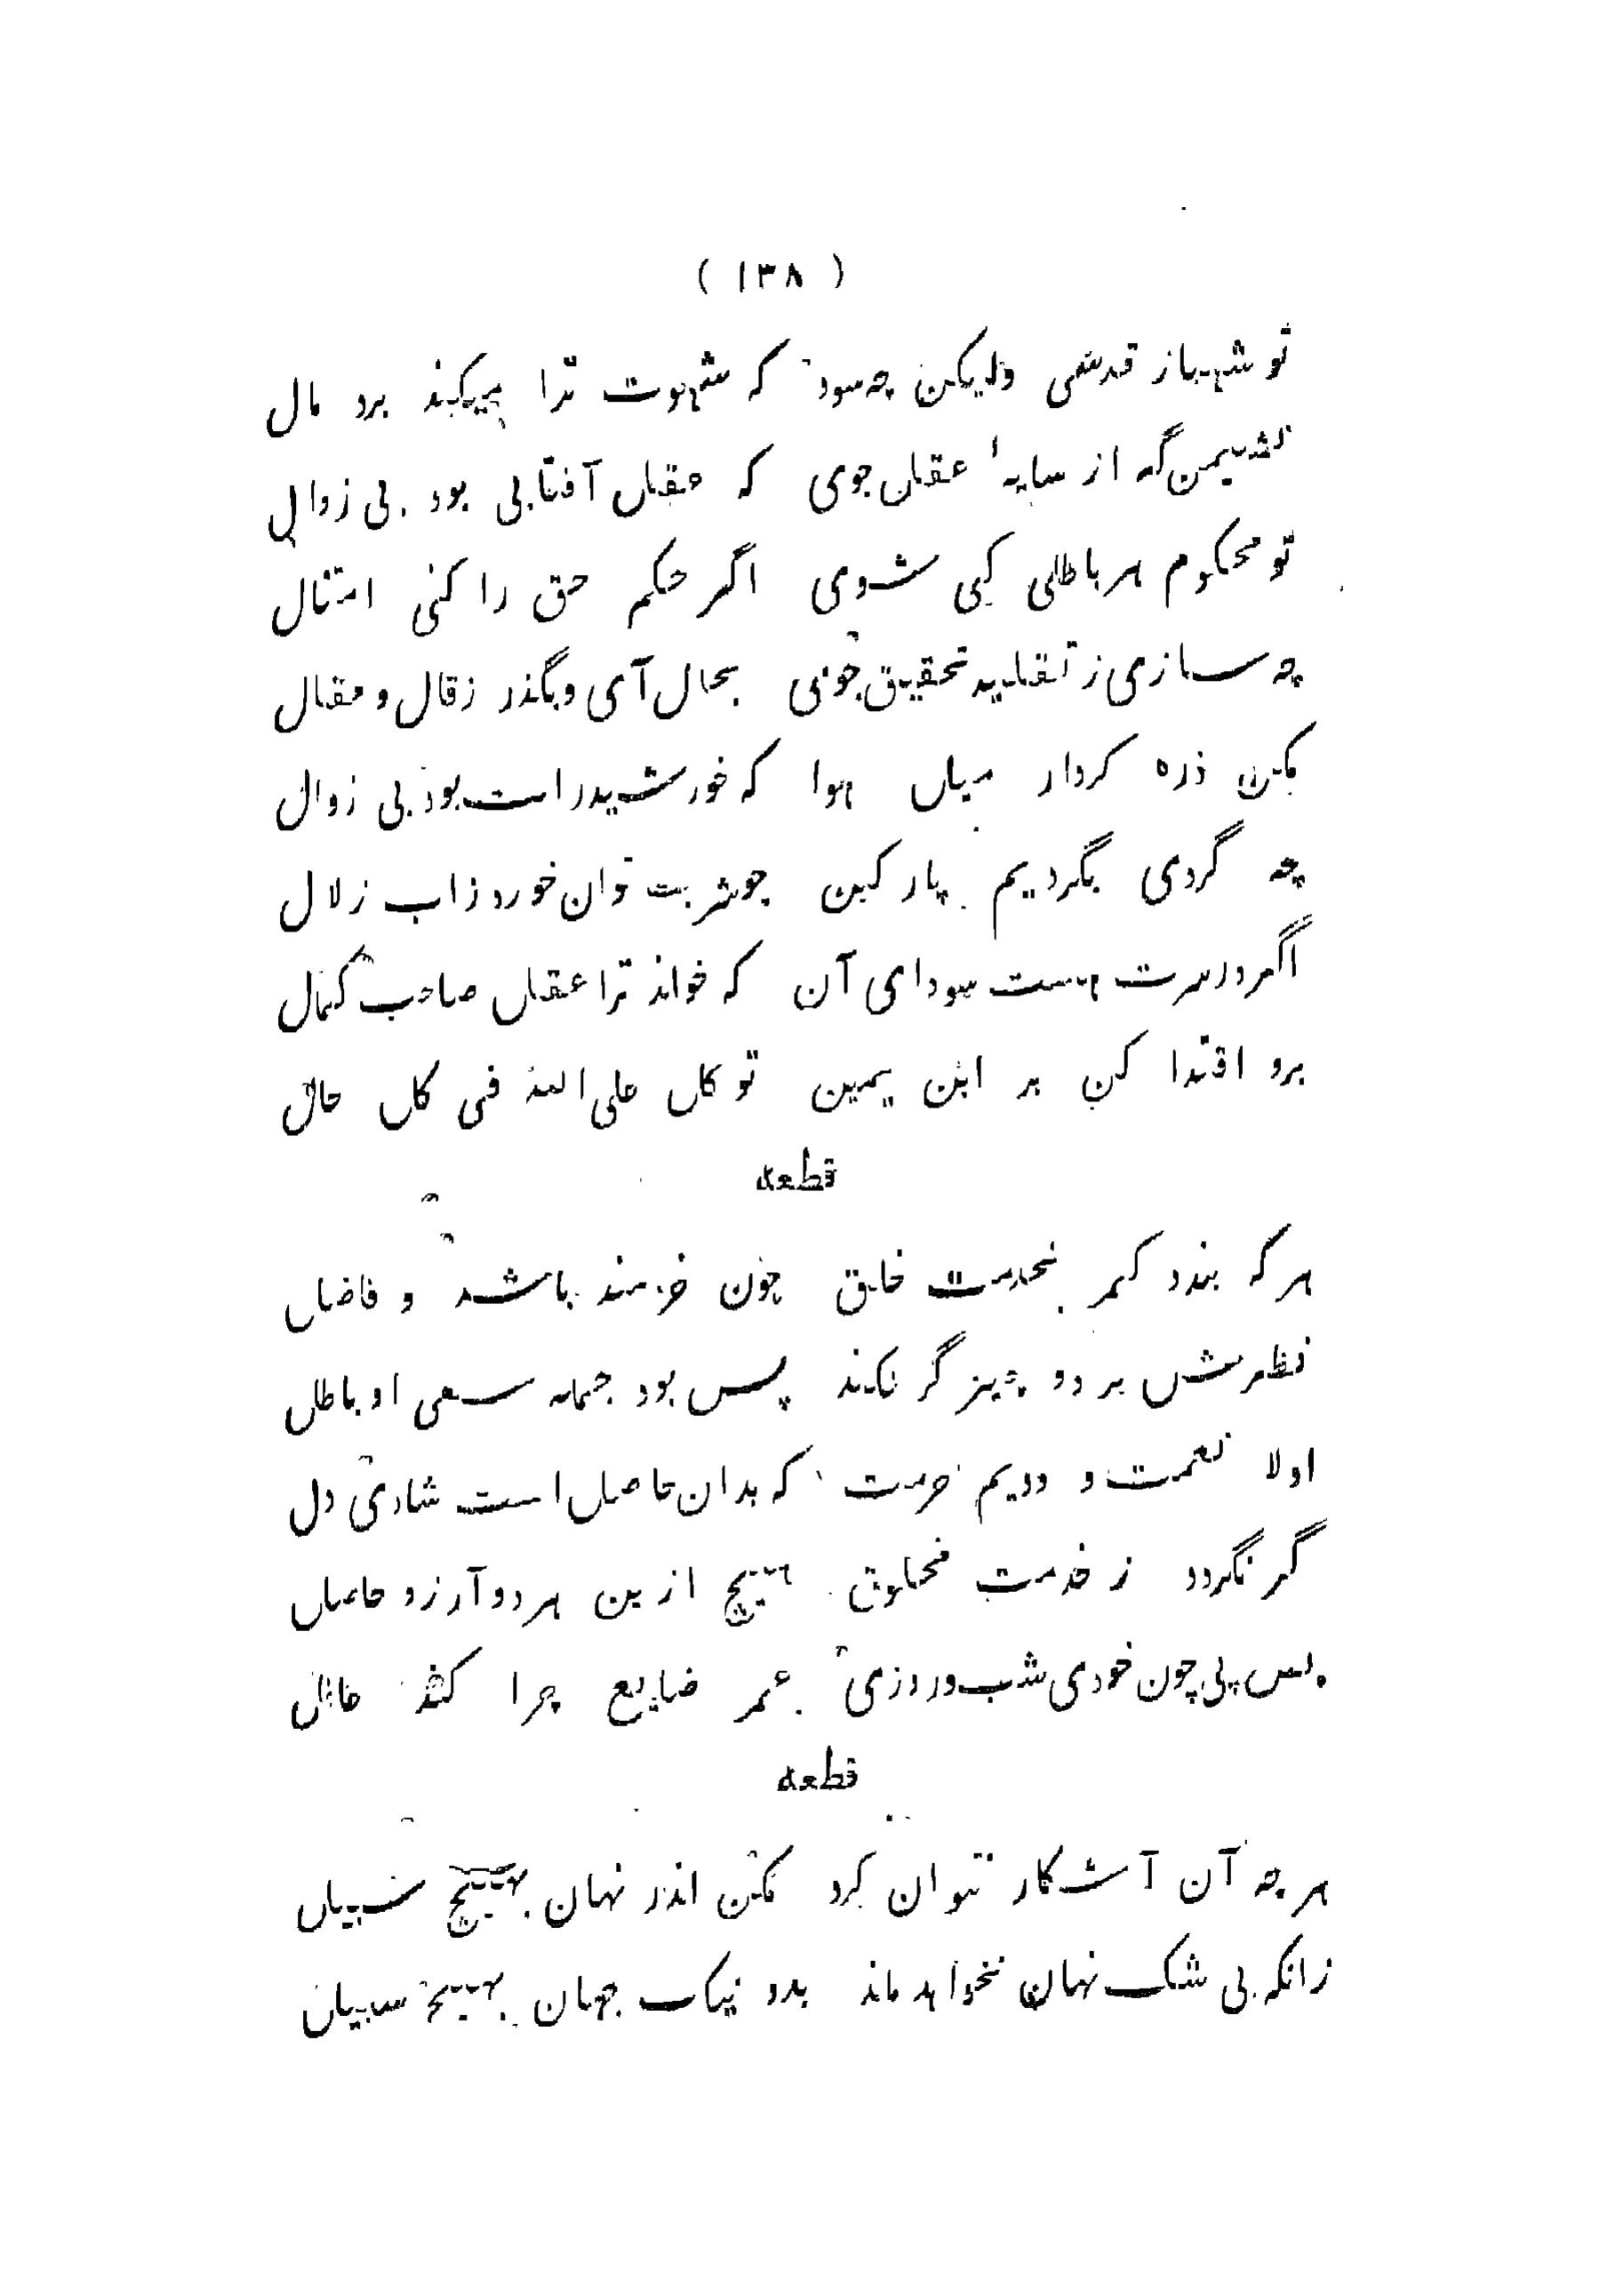 ( ۱۳۸ )
تو شهباز قدسی ولیکن چه سود که شهوت ترا میکند برد مال
نشیمن گه از سایهٔ عقل جوی که عقل آفتابی بود بی زوال
تو محکوم هر باطلی کی شوی اگر حکم حق را کنی امتثال
چه سازی ز تقلید تحقیق جوی بحال آی و بگذر ز قال و مقال
مکن ذره کردار میل هوا که خورشید راست بود بی زوال
چه گردی بگردیم پار کین چو شربت توان خورد ز اب زلال
اگر در سرت هست سودای آن که خواند ترا عقل صاحب کمال
برو اقتدا کن بر ابن یمین توکل علی الله فی کل حال
قطعه
هر که بندد کمر بخدمت خلق چون خردمند باشد و فاضل
نظرش بر دو چیز گر نکند پس بود جمله سعی او باطل
اولا نعمت و دویم حرمت که بدان حاصل است شادی دل
گر نگردد ز خدمت مخلوق هیچ ازین هر دو آرزو حاصل
پس پی چون خودی شب و روزی عمر ضایع چرا کند عاقل
قطعه
هر چه آن آشکار نتوان کرد مکن اندر نهان بهیچ سبیل
زانکه بی شک نهان نخواهد ماند بد و نیک جهان بهیچ سبیل